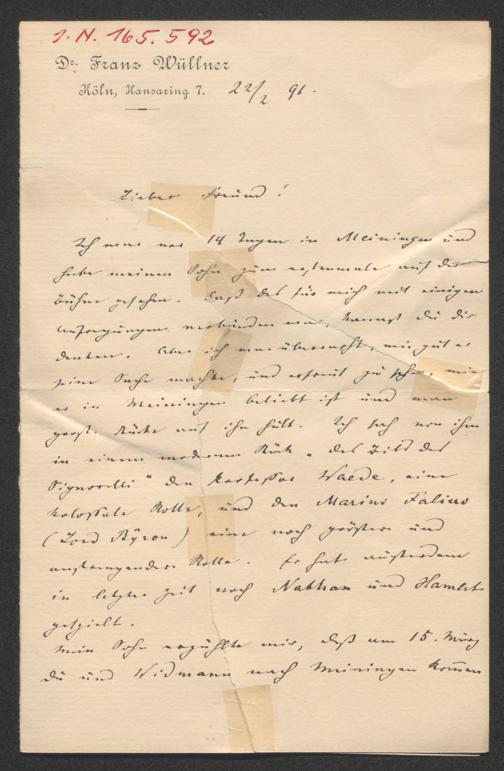 J. N. 165.592
Dr. Franz Wüllner
Köln, Hansaring 7. 22/2 96.
Lieber Freund!
Ich war vor 14 Tagen in Meiningen und
habe meinen Sohn zum erstenmale auf der
Bühne gesehen. Daß das für mich mit einigen
Aufregungen verbunden war, kannst du dir
denken. Aber ich war überrascht, wie gut er
seine Sache machte, und erfreut zu sehen, wie
er in Meiningen beliebt ist und man
große Stücke auf ihn hält. Ich sah von ihm
in einem modernen Stück „das Bild des
Signorelli" den Professor Waede, eine
kolossale Rolle, und den Marino Faliero
(Lord Byron) eine noch größere und
anstrengendere Rolle. Er hat außerdem
in letzter Zeit noch Nathan und Hamlet
gespielt.
Mein Sohn erzählte mir, daß am 15. März
du und Widmann nach Meiningen kommen